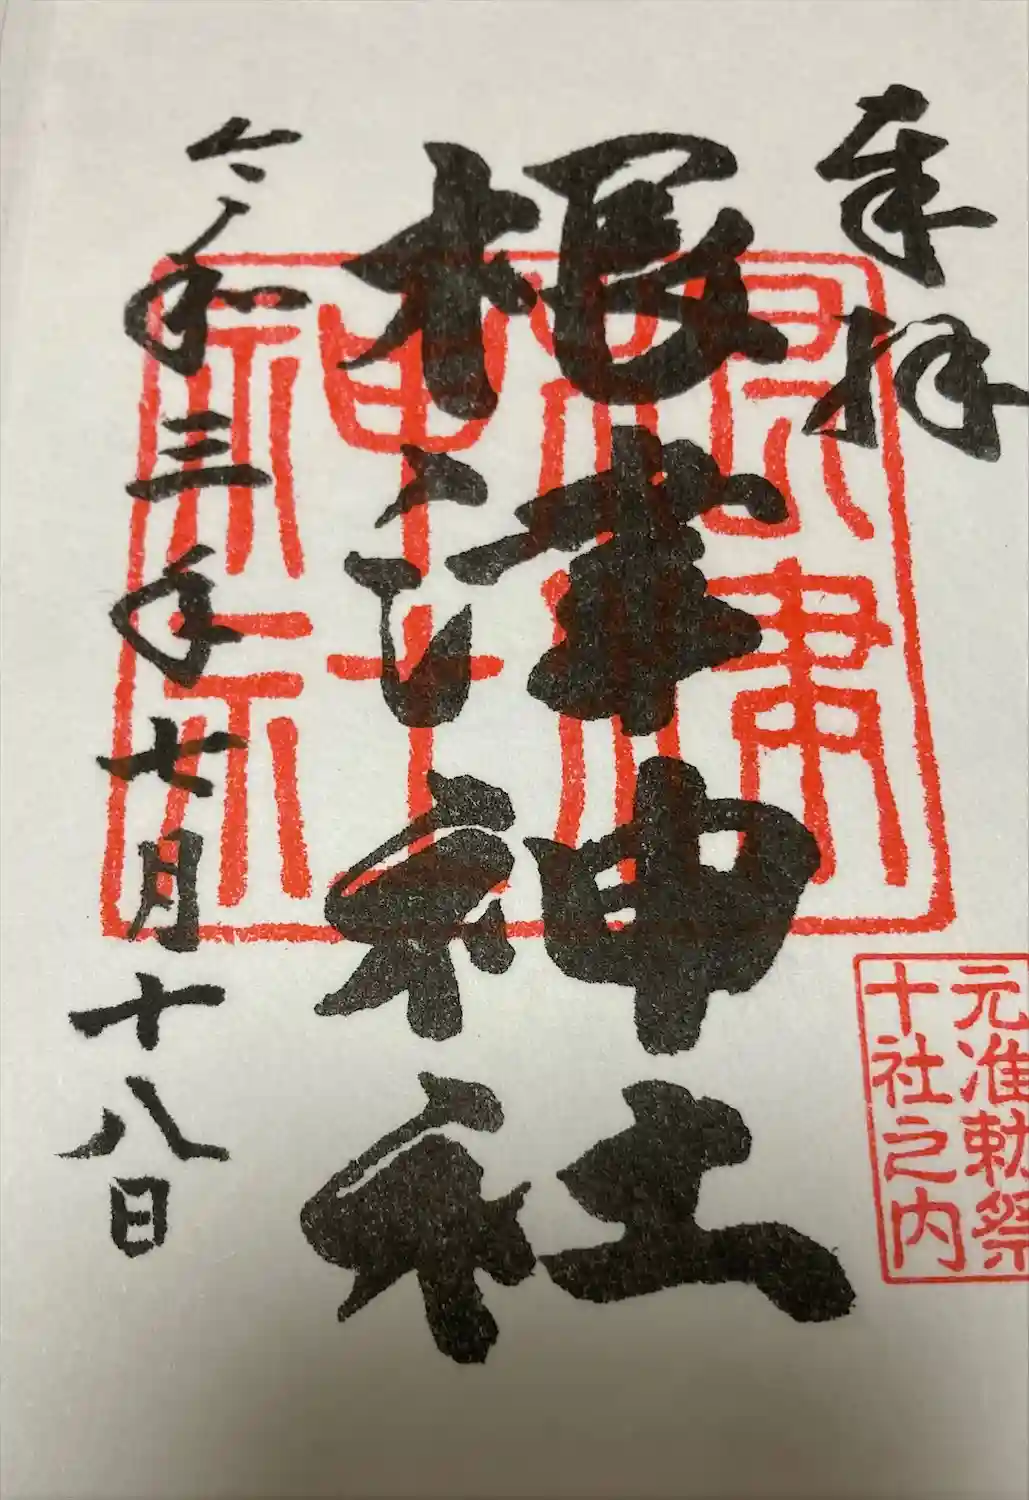 奉拝
根津神社
令和三年七月十八日
根津神社
元准勅祭
十社之内